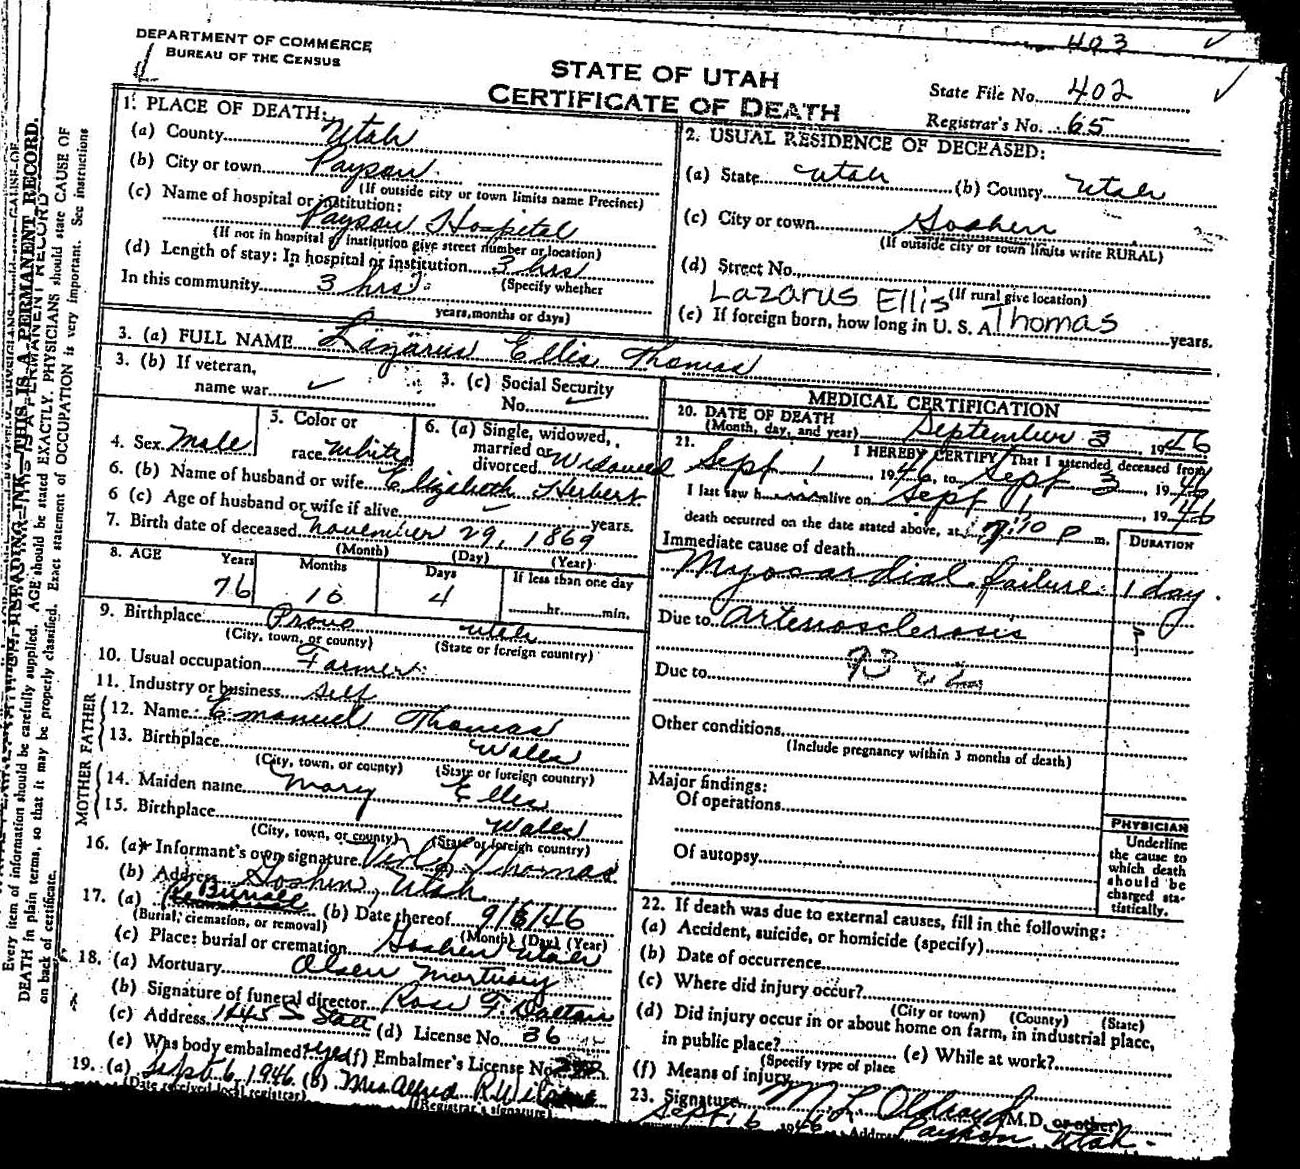 403
DEPARTMENT OF COMMERCE
BUREAU OF THE CENSUS
STATE OF UTAH
CERTIFICATE OF DEATH
State File No. 402
Registrar's No. 65
1. PLACE OF DEATH:
(a) County Utah
(b) City or town Payson
(If outside city or town limits name Precinct)
(c) Name of hospital or institution:
Payson Hospital
(If not in hospital or institution give street number or location)
(d) Length of stay: In hospital or institution 3 hrs
(Specify whether
In this community 3 hrs.
years, months or days)
2. USUAL RESIDENCE OF DECEASED:
(a) State Utah (b) County Utah
(c) City or town Goshen
(If outside city or town limits write RURAL)
(d) Street No.
Lazarus Ellis Thomas
(If rural give location)
(e) If foreign born, how long in U. S. A. years.
3. (a) FULL NAME Lazarus Ellis Thomas
3. (b) If veteran,
name war
3. (c) Social Security
No.
4. Sex Male
5. Color or
race White
6. (a) Single, widowed,
married or
divorced Widowed
6. (b) Name of husband or wife Elizabeth Herbert
6 (c) Age of husband or wife if alive years.
7. Birth date of deceased November 29, 1869
(Month) (Day) (Year)
8. AGE Years Months Days If less than one day
76 10 4 hr. min.
9. Birthplace Provo Utah
(City, town, or county) (State or foreign country)
10. Usual occupation Farmer
11. Industry or business self
FATHER
12. Name Emanuel Thomas
13. Birthplace Wales
(City, town, or county) (State or foreign country)
MOTHER
14. Maiden name Mary Ellis
15. Birthplace Wales
(City, town, or county) (State or foreign country)
16. (a) Informant's own signature Thomas
(b) Address Goshen, Utah
17. (a) Burial (b) Date thereof 9/6/46
(Burial, cremation, or removal) (Month) (Day) (Year)
(c) Place: burial or cremation Goshen Utah
18. (a) Mortuary Olsen Mortuary
(b) Signature of funeral director
(c) Address 1145 S State (d) License No. 36
(e) Was body embalmed? yes (f) Embalmer's License No.
19. (a) Sept. 6, 1946 (b) Mrs Alfred R
(Date received local registrar) (Registrar's signature)
MEDICAL CERTIFICATION
20. DATE OF DEATH
(Month, day, and year) September 3 1946
21. I HEREBY CERTIFY, That I attended deceased from
Sept 1 1946, to Sept 3, 19
I last saw h alive on Sept 1, 1946
death occurred on the date stated above, at 7:10 P m.
DURATION
Immediate cause of death
Myocardial failure 1 day.
Due to Arteriosclerosis
Due to
Other conditions
(Include pregnancy within 3 months of death)
Major findings:
Of operations
Of autopsy
PHYSICIAN
Underline
the cause to
which death
should be
charged sta-
tistically.
22. If death was due to external causes, fill in the following:
(a) Accident, suicide, or homicide (specify)
(b) Date of occurrence
(c) Where did injury occur?
(City or town) (County) (State)
(d) Did injury occur in or about home on farm, in industrial place,
in public place? (e) While at work?
(Specify type of place
(f) Means of injury
23. Signature M L Oldroyd (M.D. or other)
Sept. 6 1946 Address Payson, Utah
Every item of information should be carefully supplied. AGE should be stated EXACTLY. PHYSICIANS should state CAUSE OF
DEATH in plain terms, so that it may be properly classified. Exact statement of OCCUPATION is very important. See instructions
on back of certificate.
THIS IS A PERMANENT RECORD.